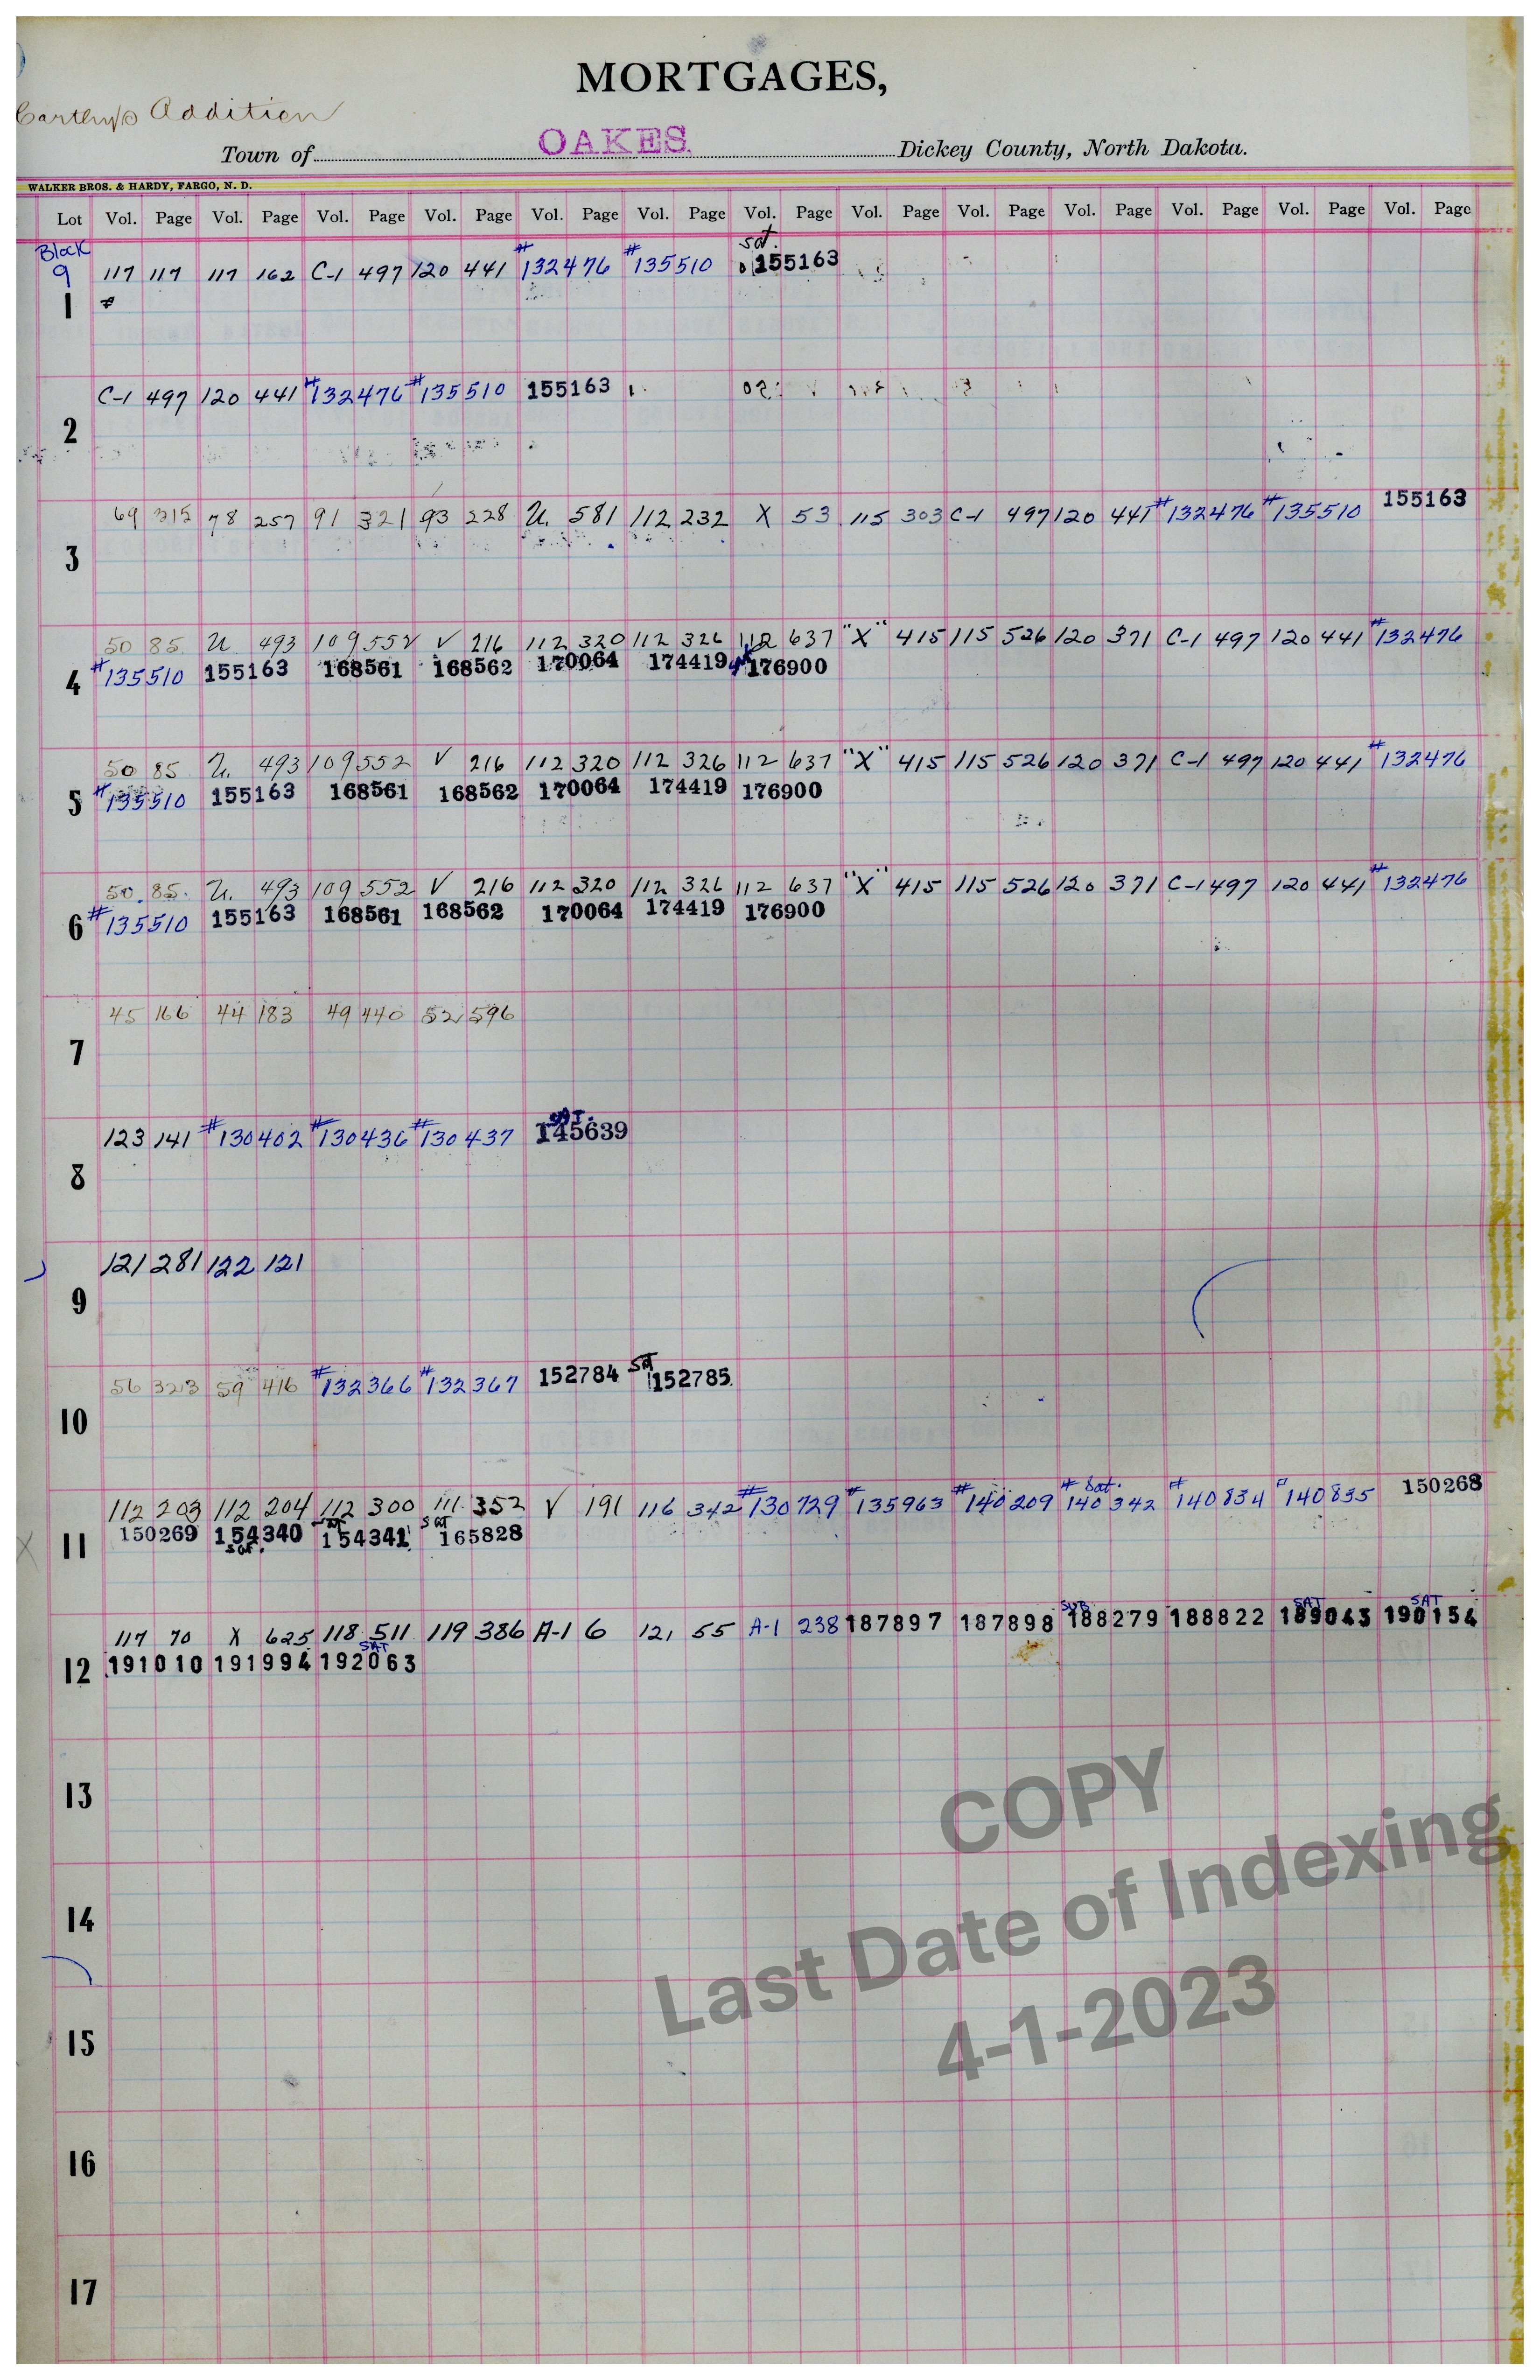 MORTGAGES,
Carthy's Addition
Town of OAKES. Dickey County, North Dakota.
WALKER BROS. & HARDY, FARGO, N. D.
Lot Vol. Page Vol. Page Vol. Page Vol. Page Vol. Page Vol. Page Vol. Page Vol. Page Vol. Page Vol. Page Vol. Page Vol. Page Vol. Page
Block
9 117 117 117 162 C-1 497 120 441 #132476 #135510 Sat. 155163
1
C-1 497 120 441 #132476 #135510 155163
2
69 315 78 257 91 321 93 228 U. 581 112 232 X 53 115 303 C-1 497 120 441 #132476 #135510 155163
3
50 85. U 493 109 552 V 216 112 320 112 326 112 637 "X" 415 115 526 120 371 C-1 497 120 441 #132476
4 #135510 155163 168561 168562 170064 174419 176900
50 85 U. 493 109 552 V 216 112 320 112 326 112 637 "X" 415 115 526 120 371 C-1 497 120 441 #132476
5 #135510 155163 168561 168562 170064 174419 176900
50. 85. U. 493 109 552 V 216 112 320 112 326 112 637 "X" 415 115 526 120 371 C-1 497 120 441 #132476
6 #135510 155163 168561 168562 170064 174419 176900
45 166 44 183 49 440 52 596
7
123 141 #130402 #130436 #130437 SAT. 145639
8
121 281 122 121
9
56 323 59 416 #132366 #132367 152784 Sat 152785
10
112 203 112 204 112 300 111 352 V 191 116 342 #130729 #135963 #140209 # Sat. 140342 #140834 #140835 150268
11 150269 154340 sat. sat 154341 sat 165828
117 70 X 625 118 511 119 386 A-1 6 121 55 A-1 238 187897 187898 SUB 188279 188822 SAT 189043 SAT 190154
12 191010 191994 SAT 192063
13
14
15
16
17
COPY
Last Date of Indexing
4-1-2023